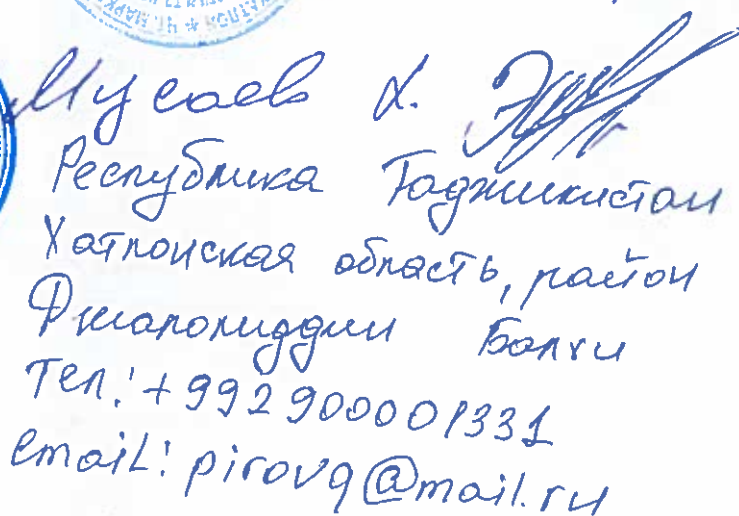 Мусаев Х.
Республика Таджикистан
Хатлонская область, район
Джалолиддин Балхи
Тел.: +992 900001331
email: pirovq@mail.ru